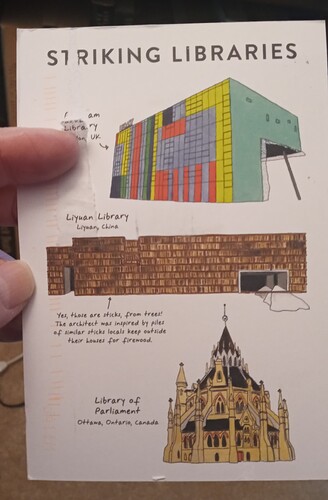 STRIKING LIBRARIES
am
Library
UK
Liyuan Library
Liyuan, China
Yes, those are sticks, from trees!
The architect was inspired by piles
of similar sticks locals keep outside
their houses for firewood.
Library of
Parliament
Ottawa, Ontario, Canada